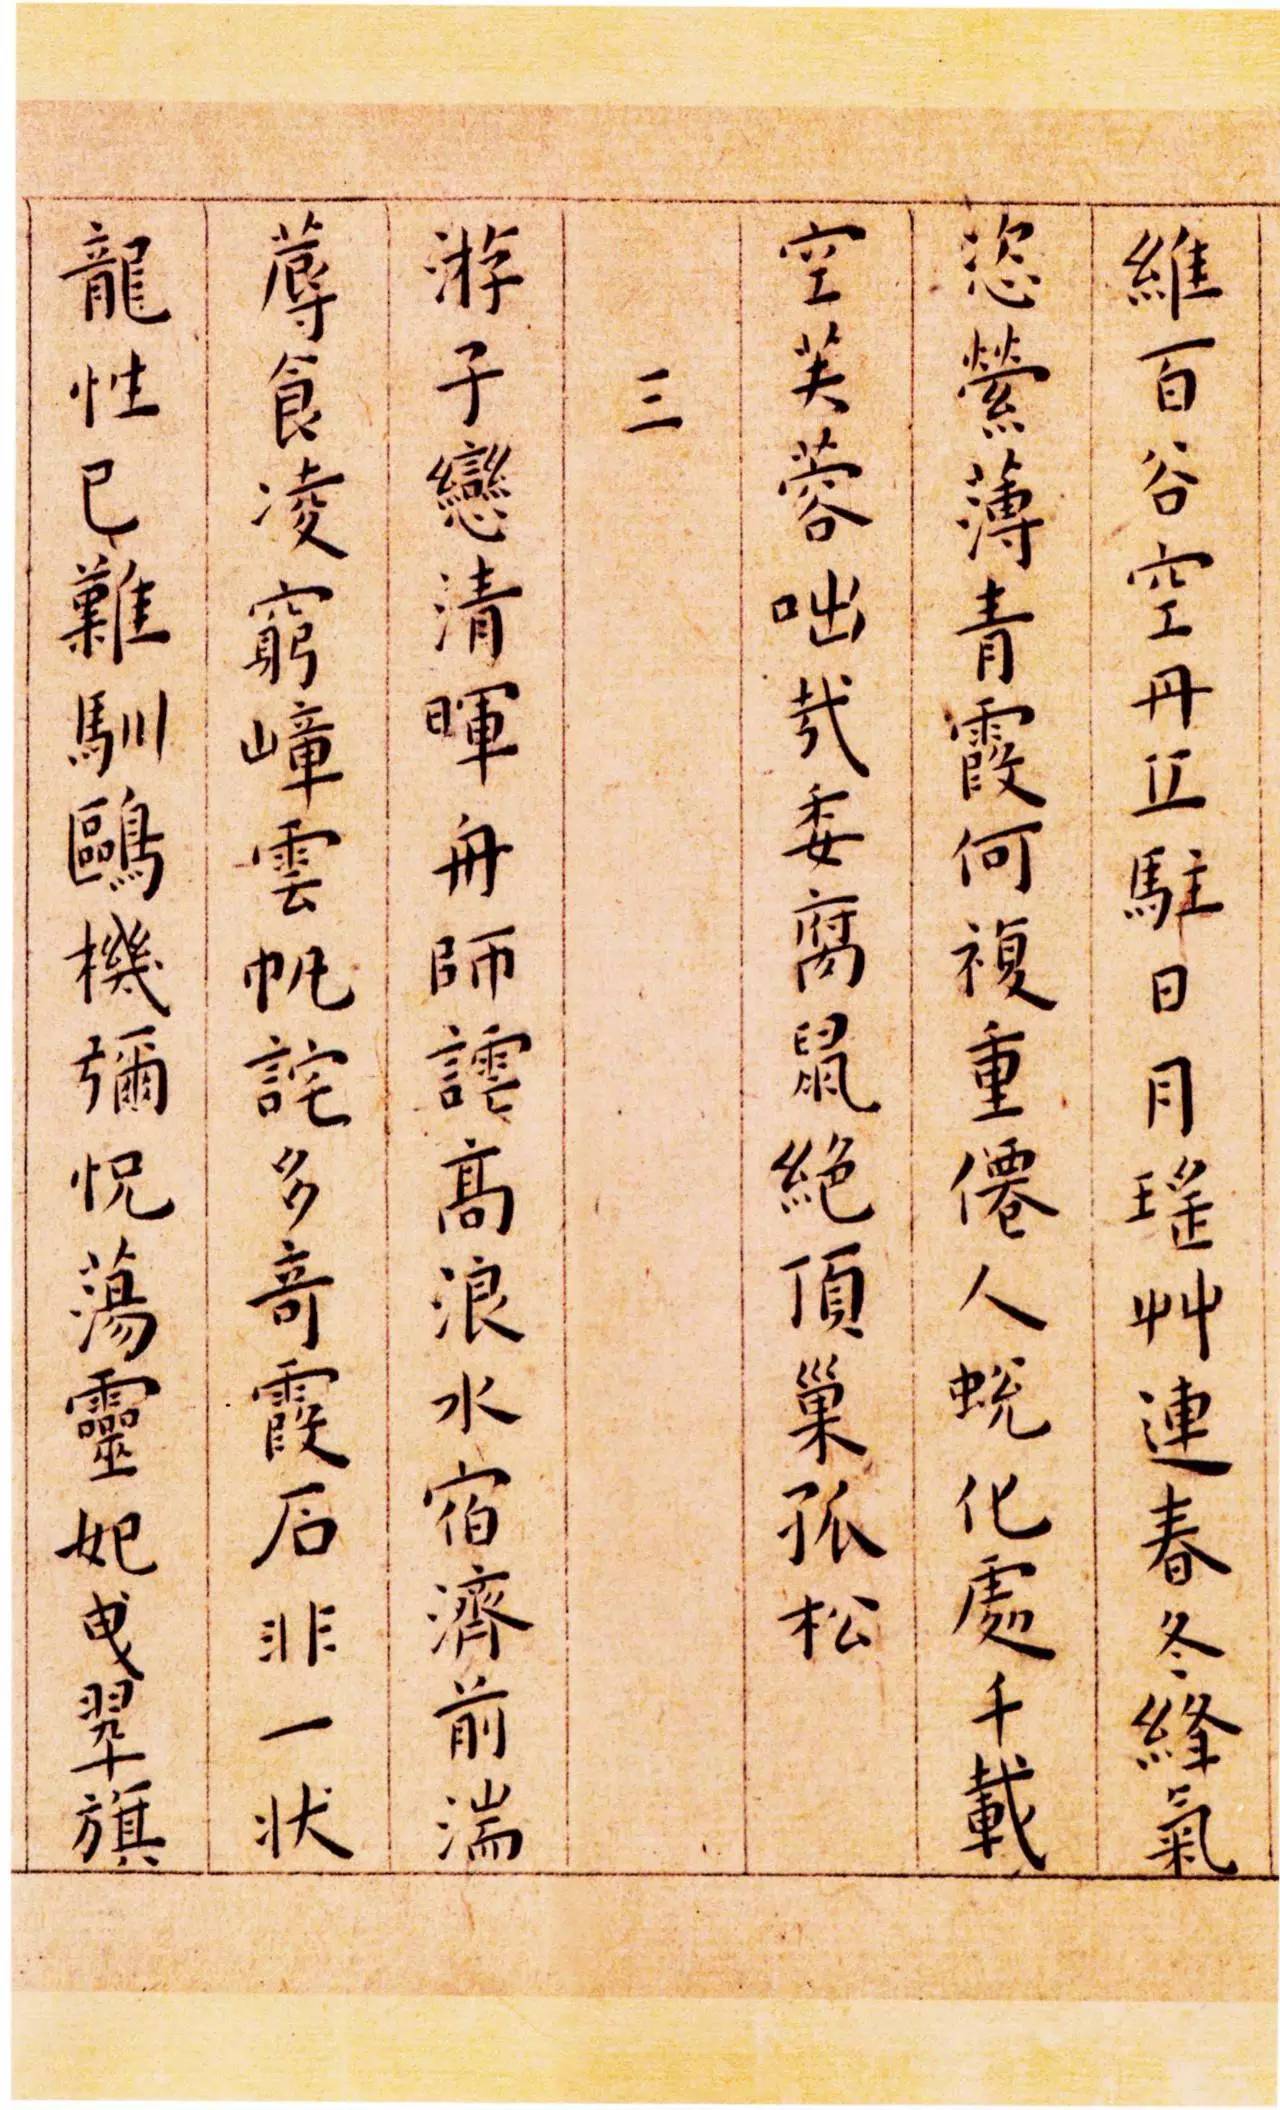 維百谷空丹丘駐日月瑤艸連春冬絳氣
恣縈薄青霞何複重僊人蛻化處千載
空芙蓉咄哉委腐鼠絕頂巢孤松
三
游子戀清暉舟師譚高浪水宿濟前湍
蓐食凌窮嶂雲帆詫多奇霞石非一狀
龍性已難馴鷗機彌怳蕩靈妃曳翠旗